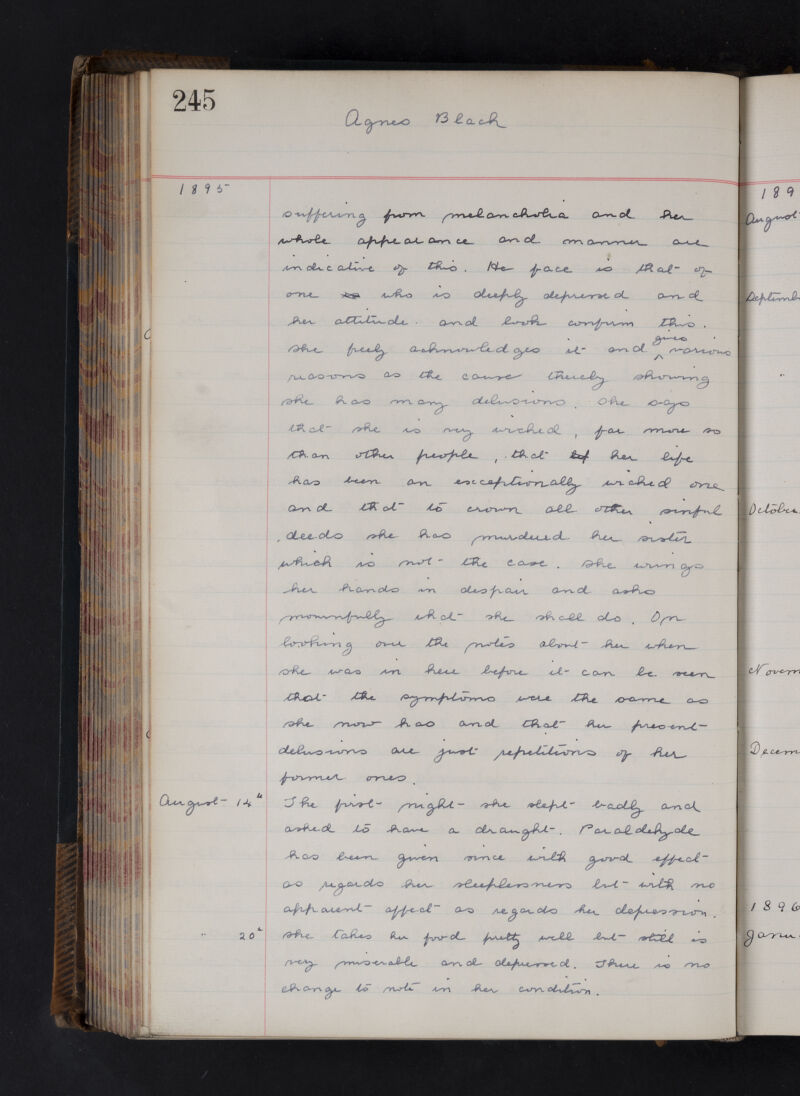 245
Agnes Black
1895
suffering from melancholia and her
whole appearance and manner are
indicative of this. He face is that of
one who is deeply depressed and
her attitude and look confirm this.
she freely acknowledges it and gives various
reasons as the cause thereby showing
she has many delusions. She says
that she is very wicked, far more so
than other people, that her life
has been an exceptionally wicked one
and that to crown all other sinful
deeds she has murdered her sister
which is not the case. She wrings
her hands in despair and asks
mournfully what she shall do. On
looking over the notes about her when
she was in here before it can be seen
that the symptoms were the same as
she now has and that her present
delusions are just repetitions of her
former ones.
August 14th The first night she slept badly and
asked to have a draught. Paraldehyde
has been given since with good effect
as regards her sleeplessness but with no
apparent affect as regards her depression.
" 20th She takes her food pretty well but still is
very miserable and depressed. There is no
change to note in her condition.
189
August
Septemb
"
October
Novem
Decem
1896
Janu